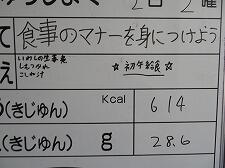 2日 2曜
て 食事のマナーを身につけよう
いわしの生姜煮
しもつかれ
こしね汁
え
☆初午給食☆
(きじゅん) Kcal 614
(きじゅん) g 28.6